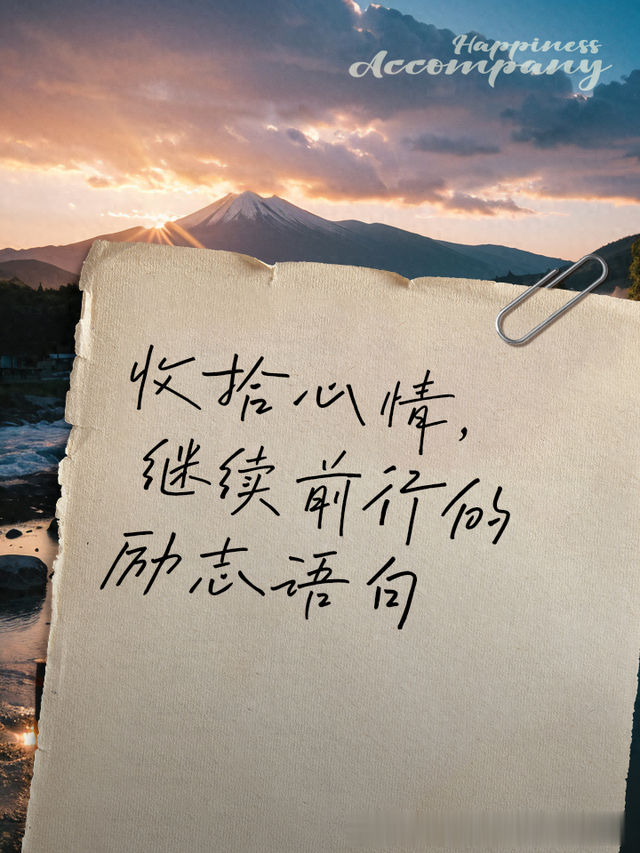 Happiness
Accompany
收拾心情,
继续前行的
励志语句